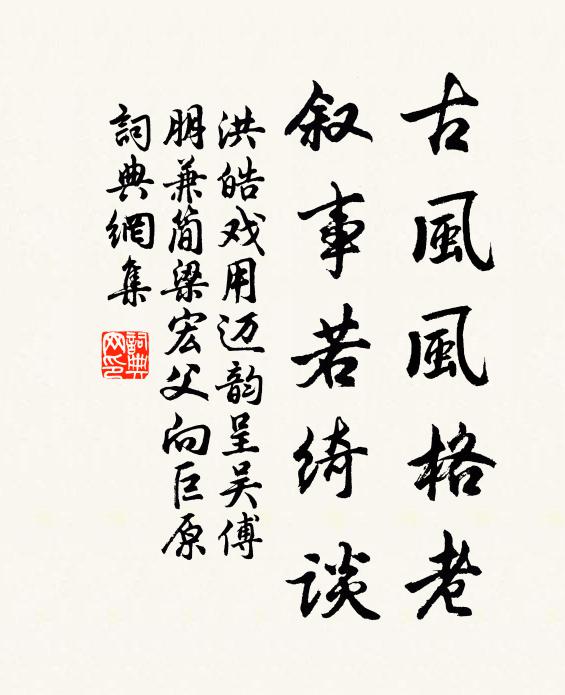 古風風格老
叙事若綺談
洪皓戏用迈韵呈吴傅
朋兼简梁宏父向巨原
詞典網集
詞典网印